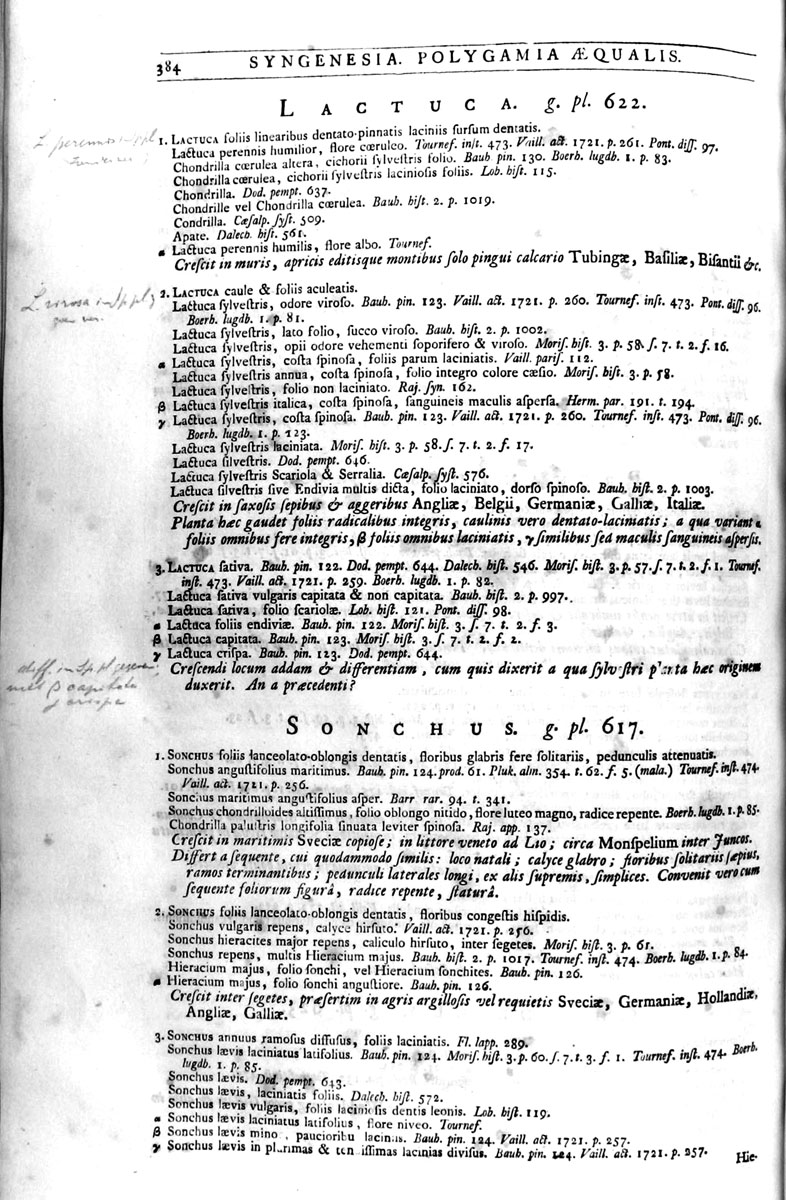 384 SYNGENESIA. POLYGAMIA ÆQUALIS.
LACTUCA. g. pl. 622.
1. LACTUCA foliis linearibus dentato-pinnatis laciniis ſurſum dentatis.
Lactuca perennis humilior, flore cœruleo. Tournef. inſt. 473. Vaill. act. 1721. p. 261. Pont. diſſ. 97.
Chondrilla cœrulea altera, cichorii ſylveſtris folio. Baub pin. 130. Boerh. lugdb. 1. p. 83.
Chondrilla cœrulea, cichorii ſylveſtris lacinioſis foliis. Lob. hiſt. 115.
Chondrilla. Dod. pempt. 637.
Chondrille vel Chondrilla cœrulea. Bauh. hiſt. 2. p. 1019.
Condrilla. Cæſalp. ſyſt. 509.
Apate. Dalech. hiſt. 561.
α Lactuca perennis humilis, flore albo. Tournef.
Creſcit in muris, apricis editisque montibus ſolo pingui calcario Tubingæ, Baſiliæ, Biſantii &c.
L. perennis
L virosa in Sp pl
2. LACTUCA caule & foliis aculeatis.
Lactuca ſylveſtris, odore viroſo. Bauh. pin. 123. Vaill. act. 1721. p. 260. Tournef. inſt. 473. Pont. diſſ. 96.
Boerh. lugdb. 1. p. 81.
Lactuca ſylveſtris, lato folio, ſucco viroſo. Bauh. hiſt. 2. p. 1002.
Lactuca ſylveſtris, opii odore vehementi ſoporifero & viroſo. Moriſ. hiſt. 3. p. 58. ſ. 7. t. 2. f. 16.
α Lactuca ſylveſtris, coſta ſpinoſa, foliis parum laciniatis. Vaill. pariſ. 112.
Lactuca ſylveſtris annua, coſta ſpinoſa, folio integro colore cæſio. Moriſ. hiſt. 3. p. 58.
Lactuca ſylveſtris, folio non laciniato. Raj. ſyn. 162.
β Lactuca ſylveſtris italica, coſta ſpinoſa, ſanguineis maculis aſperſa. Herm. par. 191. t. 194.
γ Lactuca ſylveſtris, coſta ſpinoſa. Bauh. pin. 123. Vaill. act. 1721. p. 260. Tournef. inſt. 473. Pont. diſſ. 96.
Boerh. lugdb. 1. p. 123.
Lactuca ſylveſtris laciniata. Moriſ. hiſt. 3. p. 58. ſ. 7. t. 2. f. 17.
Lactuca ſilveſtris. Dod. pempt. 646.
Lactuca ſylveſtris Scariola & Serralia. Cæſalp. ſyſt. 576.
Lactuca ſilveſtris ſive Endivia multis dicta, folio laciniato, dorſo ſpinoſo. Bauh. hiſt. 2. p. 1003.
Creſcit in ſaxoſis ſepibus & aggeribus Angliæ, Belgii, Germaniæ, Galliæ, Italiæ.
Planta hæc gaudet foliis radicalibus integris, caulinis vero dentato-laciniatis; a qua variant α
foliis omnibus fere integris, β foliis omnibus laciniatis, γ ſimilibus ſed maculis ſanguineis aſperſis.
3. LACTUCA ſativa. Bauh. pin. 122. Dod. pempt. 644. Dalech. hiſt. 546. Moriſ. hiſt. 3. p. 57. ſ. 7. t. 2. f. 1. Tournef.
inſt. 473. Vaill. act. 1721. p. 259. Boerh. lugdb. 1. p. 82.
Lactuca ſativa vulgaris capitata & non capitata. Bauh. hiſt. 2. p. 997.
Lactuca ſativa, folio ſcariolæ. Lob. hiſt. 121. Pont. diſſ. 98.
α Lactuca foliis endiviæ. Bauh. pin. 122. Moriſ. hiſt. 3. ſ. 7. t. 2. f. 3.
β Lactuca capitata. Bauh. pin. 123. Moriſ. hiſt. 3. ſ. 7. t. 2. f. 2.
γ Lactuca criſpa. Bauh. pin. 123. Dod. pempt. 644.
Creſcendi locum addam & differentiam, cum quis dixerit a qua ſylveſtri planta hæc originem
duxerit. An a præcedenti?
diff. in Sp. pl
β capitata
γ crispa
SONCHUS. g. pl. 617.
1. SONCHUS foliis lanceolato-oblongis dentatis, floribus glabris fere ſolitariis, pedunculis attenuatis.
Sonchus anguſtifolius maritimus. Bauh. pin. 124. prod. 61. Pluk. alm. 354. t. 62. f. 5. (mala.) Tournef. inſt. 474.
Vaill. act. 1721. p. 256.
Sonchus maritimus anguſtifolius aſper. Barr rar. 94. t. 341.
Sonchus chondrilloides altiſſimus, folio oblongo nitido, flore luteo magno, radice repente. Boerh. lugdb. 1. p. 85.
Chondrilla paluſtris longifolia ſinuata leviter ſpinoſa. Raj. app. 137.
Creſcit in maritimis Sveciæ copioſe; in littore veneto ad Lio; circa Monſpelium inter Juncos.
Differt a ſequente, cui quodammodo ſimilis: loco natali; calyce glabro; floribus ſolitariis ſæpius,
ramos terminantibus; pedunculi laterales longi, ex alis ſupremis, ſimplices. Convenit vero cum
ſequente foliorum figurâ, radice repente, ſtaturâ.
2. SONCHUS foliis lanceolato-oblongis dentatis, floribus congeſtis hiſpidis.
Sonchus vulgaris repens, calyce hirſuto. Vaill. act. 1721. p. 256.
Sonchus hieracites major repens, caliculo hirſuto, inter ſegetes. Moriſ. hiſt. 3. p. 61.
Sonchus repens, multis Hieracium majus. Bauh. hiſt. 2. p. 1017. Tournef. inſt. 474. Boerh. lugdb. 1. p. 84.
Hieracium majus, folio ſonchi, vel Hieracium ſonchites. Bauh. pin. 126.
α Hieracium majus, folio ſonchi anguſtiore. Bauh. pin. 126.
Creſcit inter ſegetes, præſertim in agris argilloſis vel requietis Sveciæ, Germaniæ, Hollandiæ,
Angliæ, Galliæ.
3. SONCHUS annuus ramoſus diffuſus, foliis laciniatis. Fl. lapp. 289.
Sonchus lævis laciniatus latifolius. Bauh. pin. 124. Moriſ. hiſt. 3. p. 60. ſ. 7. t. 3. f. 1. Tournef. inſt. 474. Boerh.
lugdb. 1. p. 85.
Sonchus lævis. Dod. pempt. 643.
Sonchus lævis, laciniatis foliis. Dalech. hiſt. 572.
Sonchus lævis vulgaris, foliis lacinioſis dentis leonis. Lob. hiſt. 119.
α Sonchus lævis laciniatus latifolius, flore niveo. Tournef.
β Sonchus lævis minor, paucioribus laciniis. Bauh. pin. 124. Vaill. act. 1721. p. 257.
γ Sonchus lævis in plurimas & tenuiſſimas lacinias diviſus. Bauh. pin. 124. Vaill. act. 1721. p. 257.
Hie-